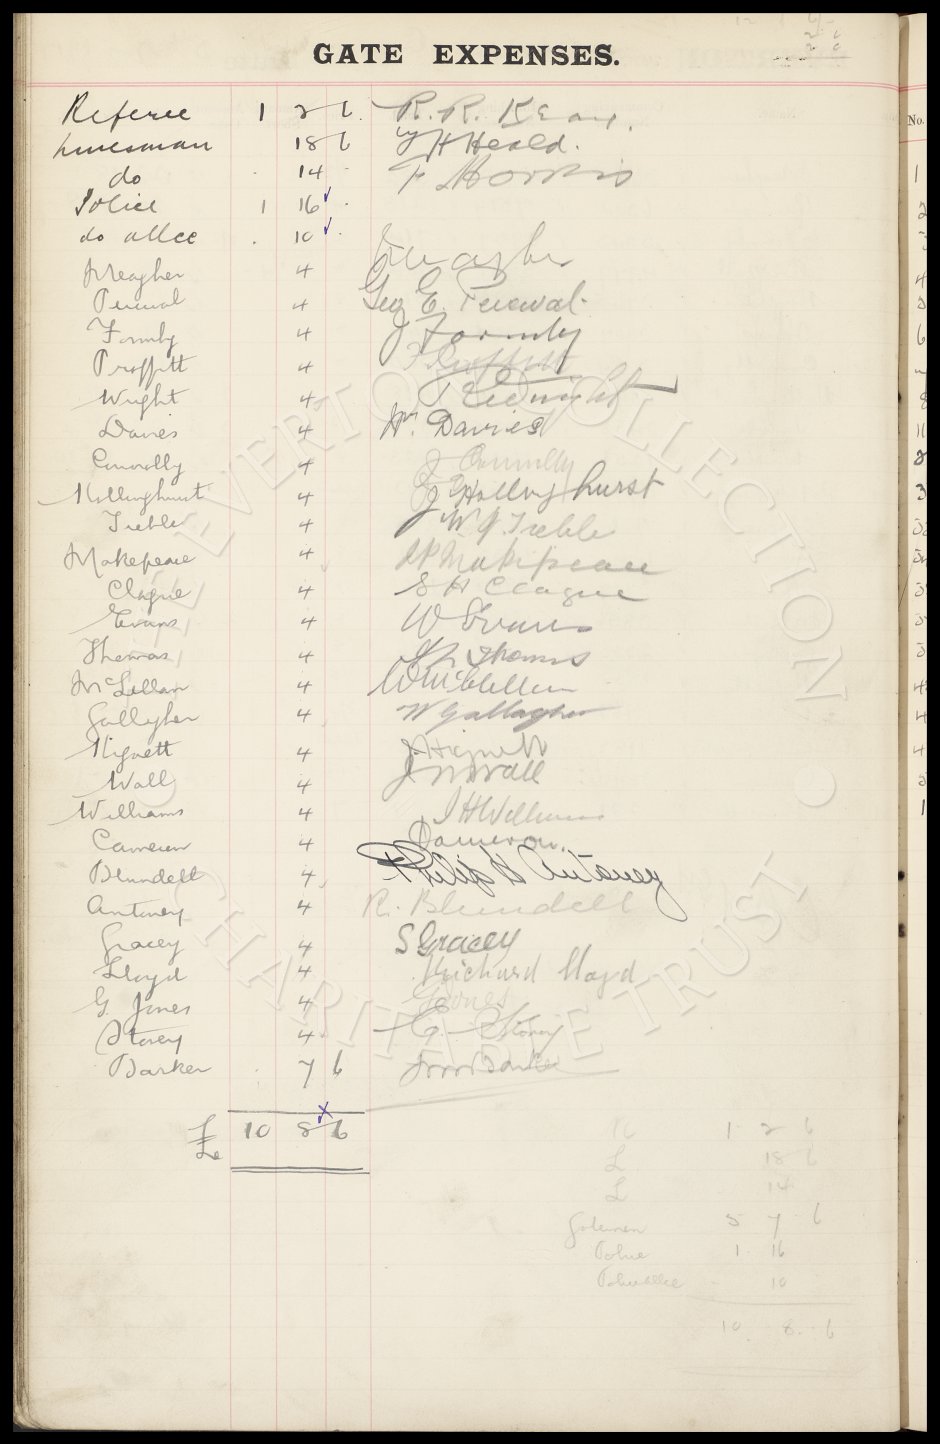 GATE EXPENSES.
Referee 1 2 6 R. R. Kean.
Linesman 18 6 H Heald.
do 14 - F Morris
Police 1 16
do allce 10
Meagher 4 Meagher
Percival 4 Geo E. Percival
Formby 4 J Formby
Proffitt 4 Proffitt
Wright 4 Wright
Davies 4 Wm Davies
Connolly 4 J Connolly
Hollinghurst 4 J Hollinghurst
Treble 4 W J. Treble
Makepeace 4 Makepeace
Clague 4 S H Clague
Evans 4 W Evans
Thomas 4 Thomas
McLellan 4 W McLellan
Gallagher 4 W Gallagher
Hignett 4 J. Hignett
Wall 4 J W Wall
Williams 4 J H Williams
Cameron 4 Cameron.
Blundell 4 Philip H Antoney
Antoney 4 R. Blundell
Gracey 4 S Gracey
Lloyd 4 Richard Lloyd
G. Jones 4 G Jones
Storey 4 E. Storey
Barker 7 6 Barker
£ 10 8 6
R 1 2 6
L 18 6
L 14
Gatemen 5 7 6
Police 1 16
Police allce 10
10 8 6
EVERTON COLLECTION CHARITABLE TRUST
No.